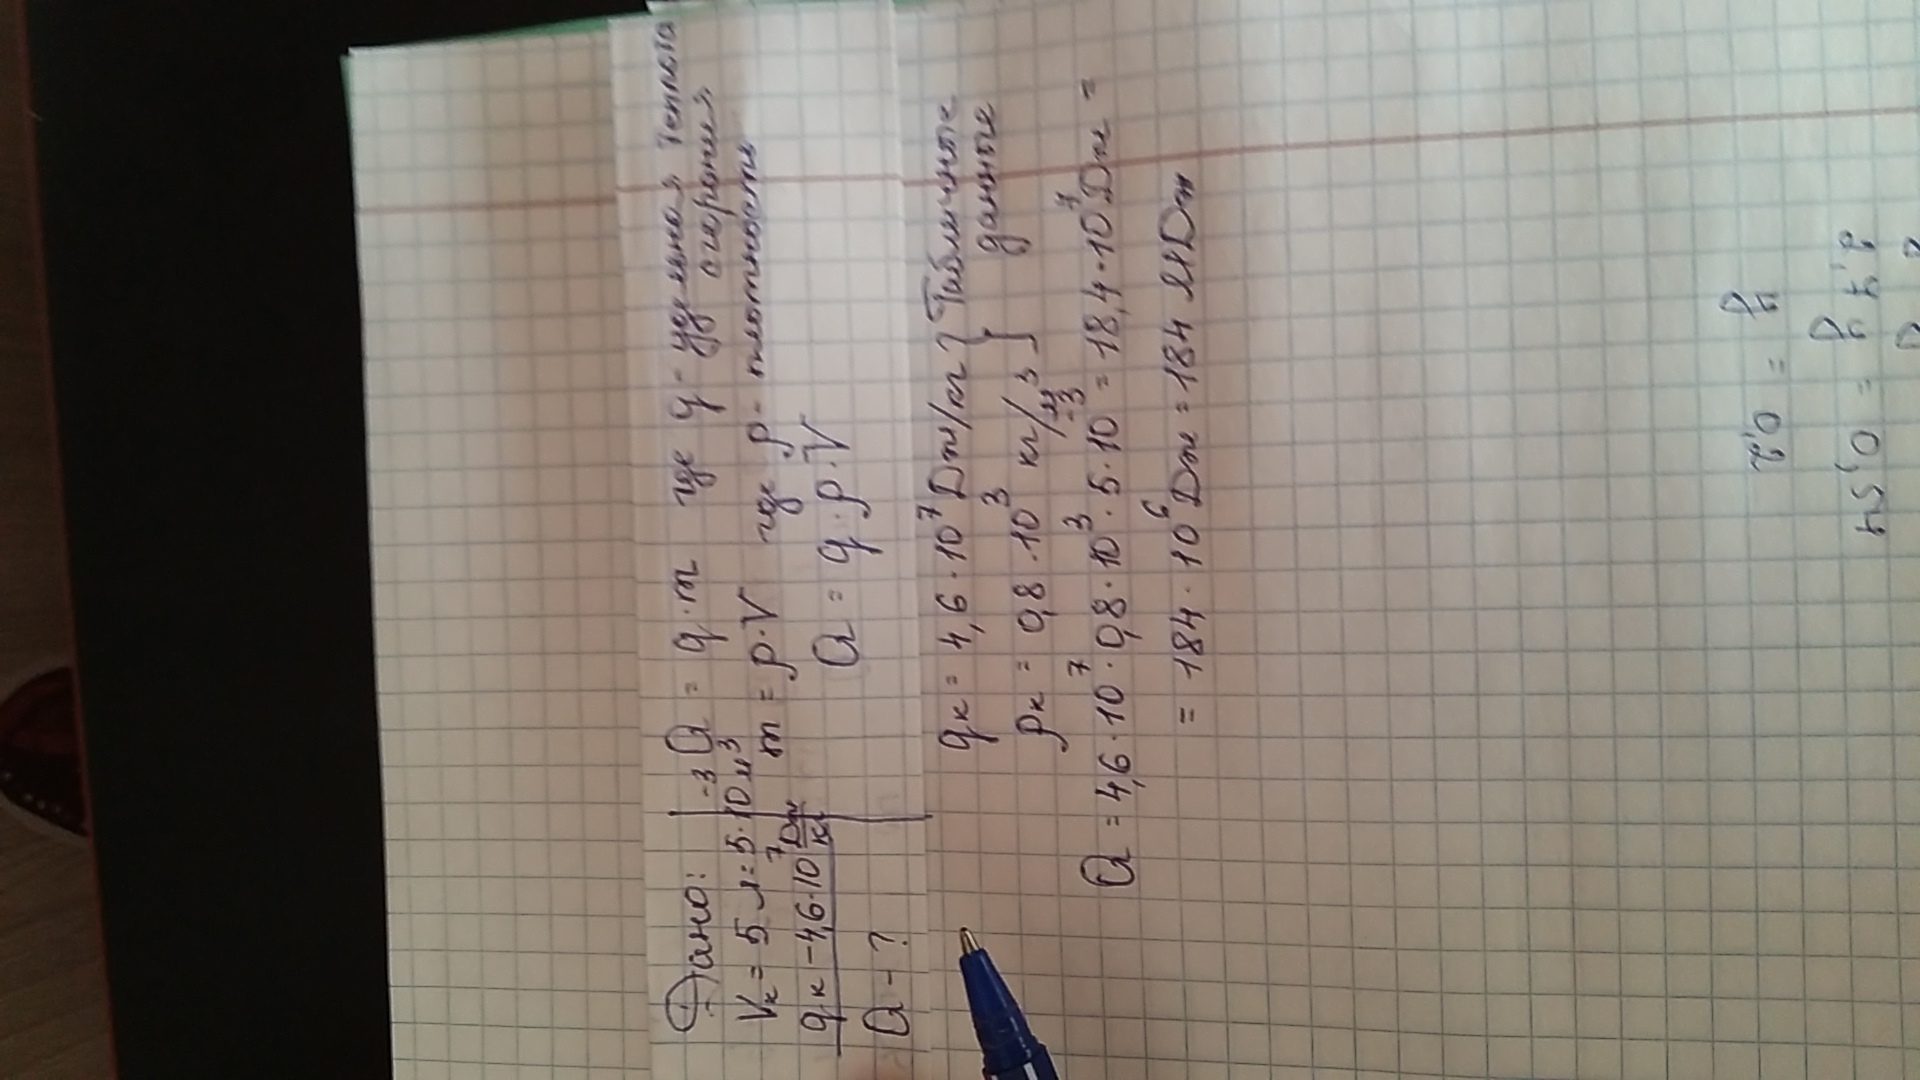 Дано:
Vк = 5 л = 5·10⁻³ м³
qк – 4,6·10⁷ Дж/кг
Q – ?
Q = q·m где q – удельная теплота сгорания
m = ρ·V где ρ – плотность
Q = q·ρ·V
qк = 4,6·10⁷ Дж/кг } Табличные
ρк = 0,8·10³ кг/м³ } данные
Q = 4,6·10⁷·0,8·10³·5·10⁻³ = 18,4·10⁷ Дж =
= 184·10⁶ Дж = 184 МДж